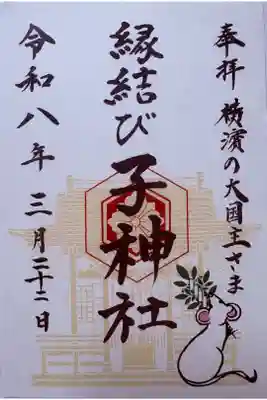 奉拝 横濱の大国主さま
縁結び 子神社
令和八年 三月二十二日